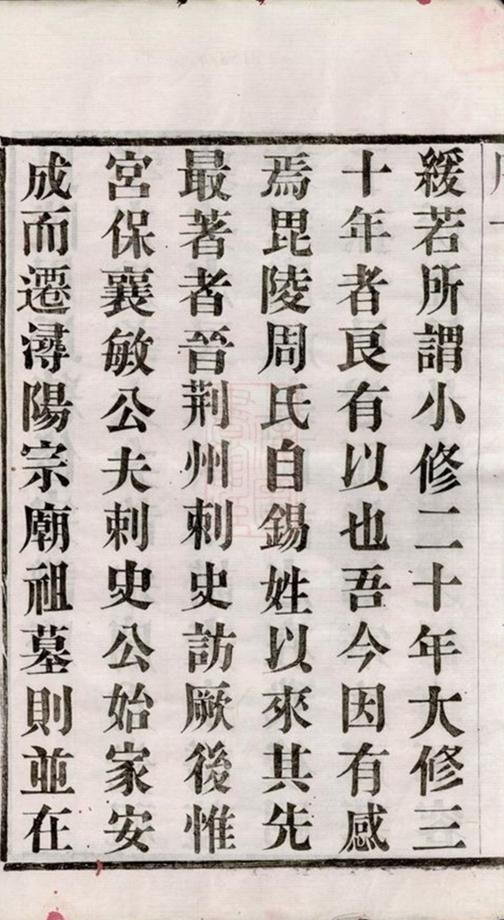 緩若所謂小修二十年大修三
十年者良有以也吾今因有感
焉毘陵周氏自錫姓以來其先
最著者晉荆州刺史訪厥後惟
宮保襄敏公夫刺史公始家安
成而遷潯陽宗廟祖墓則並在